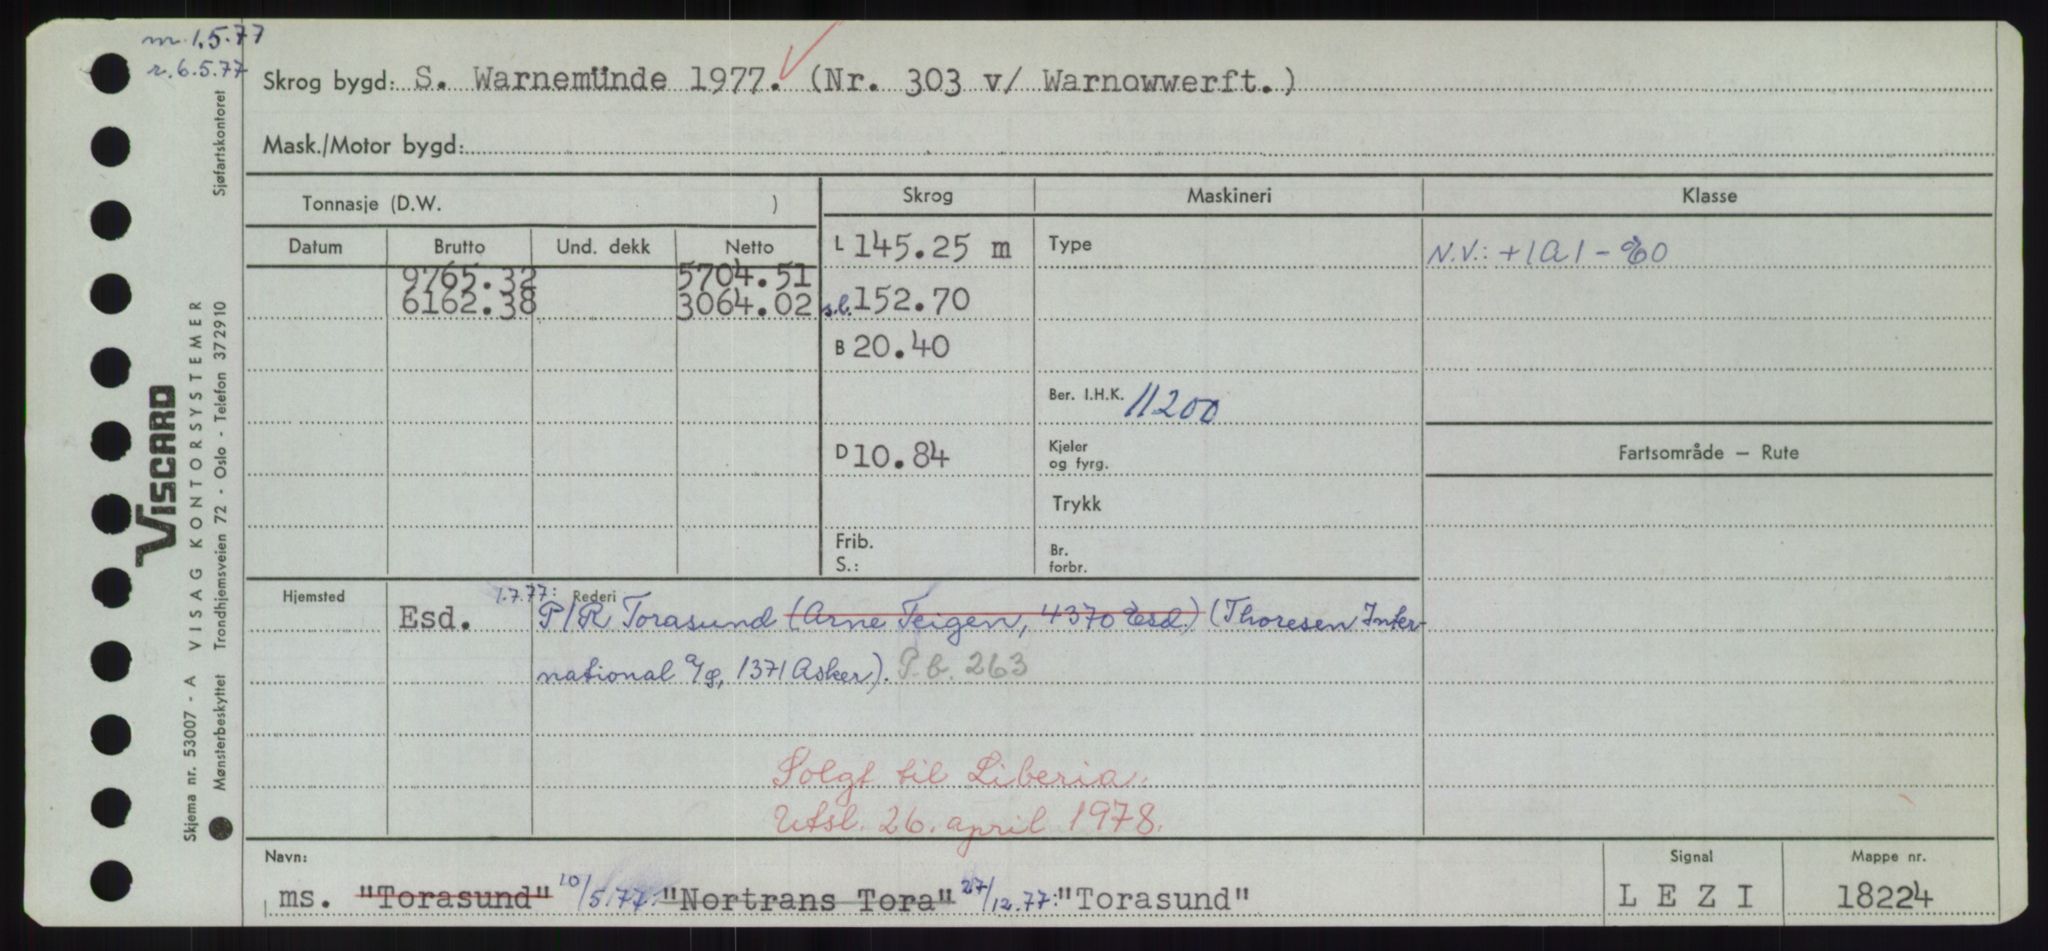 m. 1.5.77
r. 6.5.77
Skrog bygd: S. Warnemünde 1977. (Nr. 303 v/ Warnowwerft.)
Mask./Motor bygd:
Tonnasje (D.W. )
Skrog
Maskineri
Klasse
Datum
Brutto
Und. dekk
Netto
L 145.25 m
Type
N.V.: +1A1 -
9765.32
5704.51
6162.38
3064.02
s.l. 152.70
B 20.40
Ber. I.H.K. 11200
D 10.84
Kjeler
og fyrg.
Fartsområde — Rute
Trykk
Frib.
S.:
Br.
forbr.
Hjemsted
1.7.77:
Rederi
Esd.
P/R Torasund (Arne Teigen, 4370 Esd.) (Thoresen Inter-
national A/S, 1371 Asker). P.b. 263
Solgt til Liberia.
Utsl. 26. april 1978.
Navn:
Signal
Mappe nr.
ms. "Torasund" 10/5.77: "Nortrans Tora" 27/12.77: "Torasund"
L E Z I
18224
VISCARD
Skjema nr. 53007 - A VISAG KONTORSYSTEMER
Mønsterbeskyttet Trondhjemsveien 72 - Oslo - Telefon 372910 Sjøfartskontoret